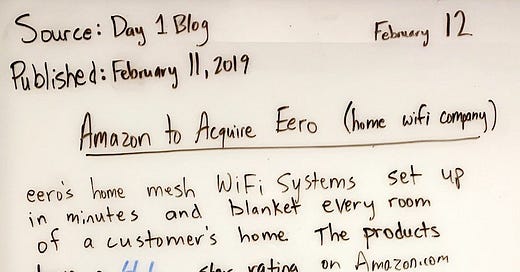 Source: Day 1 Blog
February 12
Published: February 11, 2019
Amazon to Acquire Eero (home wifi company)
eero's home mesh WiFi Systems set up
in minutes and blanket every room
of a customer's home. The products
star rating on Amazon.com